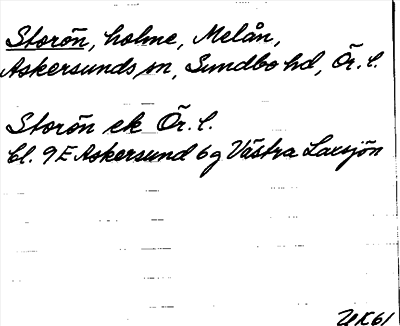 Storön, holme, Melån,
Askersunds sn, Sundbo hd, Ör. l.
Storön ek Ör. l.
bl. 9E Askersund 6g Västra Laxsjön
UK61